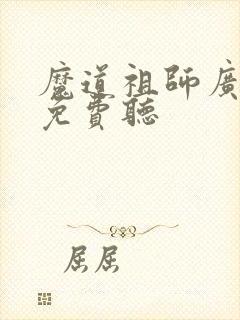 魔道祖師廣
免費聽
屈屈